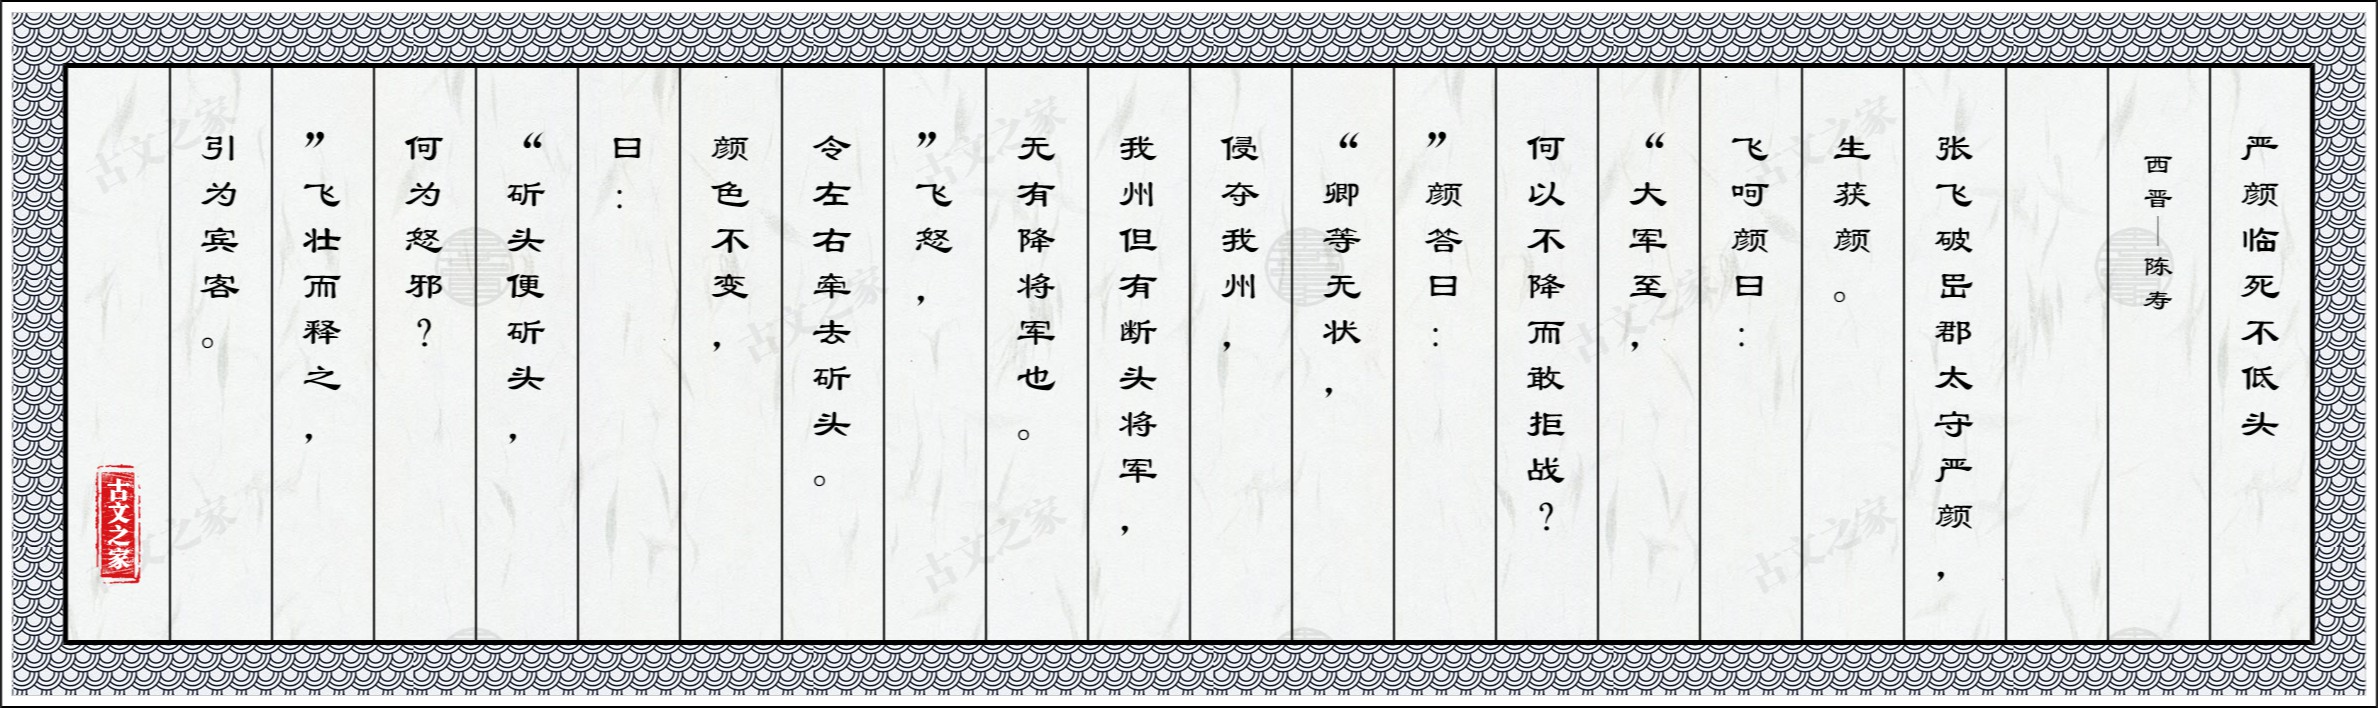 严颜临死不低头
西晋—陈寿
张飞破岊郡太守严颜，
生获颜。
飞呵颜曰：
“大军至，
何以不降而敢拒战？
”颜答曰：
“卿等无状，
侵夺我州，
我州但有断头将军，
无有降将军也。
”飞怒，
令左右牵去斫头。
颜色不变，
曰：
“斫头便斫头，
何为怒邪？
”飞壮而释之，
引为宾客。
古文之家